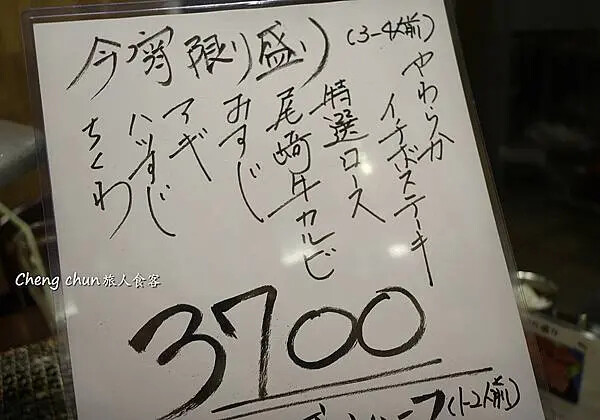 今宵限り盛り (3-4人前)
やわらか
イチボステーキ
特選ロース
尾崎牛カルビ
おすじ
アギ
ハツすじ
ちくわ
3700
(1-2人前)
Cheng chun 旅人食客